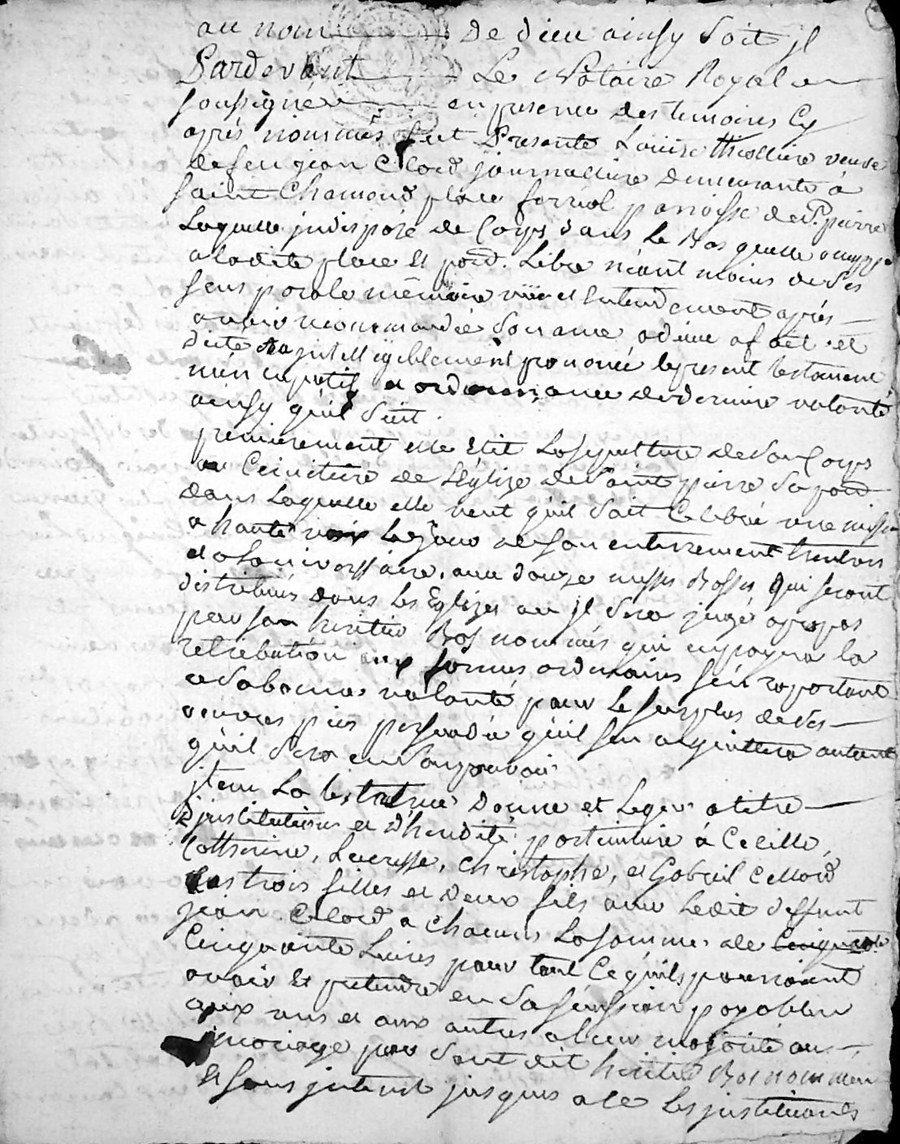 au nom De dieu ainsy Soit jl
Pardevant Le Notaire Royal
soussigné en presence des temoins Cy
après nommés fut Presente Louise thiolliere veuve
de feu jean Celord journalliere Demeurante à
saint Chamond place forriol paroisse de St pierre
Laquelle jndisposé de Corps dans Le Bas quelle occuppe
a ladite place Et pord. Libre néant moins de Ses
sens parole mémoire vüe et Entendement après
avoir recommandée Son ame a dieu a fait et
dicté jntelligiblement prononcé le present testament
nuncupatif et ordonnance de derniere volonté
ainsy quil Suit.
premierement elle Elit La sepulture de Son Corps
au Cimitiere de L'Eglise de Saint pierre Sa pard
dans Laquelle elle veut quil Soit Celebré une messe
a haute voix Le jour de Son enterrement trentain
et a L'anniversaire, avec douze messes Basses qui seront
distribués dans Les Eglizes ou jl Sera jugé apropos
par son heritier Bas nommés qui en payera la
retribution aux formes ordinaires s'en raportant
a Sa bonne volonté pour Le surplus de Ses
oeuvres pies persuadée qu'il sen acquittera autant
qu'il Sera en Son pouvoir
jtem La testatrice Donne et Legue a titre
d'jnstitution et d'heredité particuliere à Cecille,
Catherine, Lucresse, Christophe, et Gabriel Cellord
Ses trois filles et Deux fils avec Ledit deffunt
jean Celord a Chacuns La somme de Cinquante
Cinquante Livres pour tout Ce qu'ils pourroient
avoir Et pretendre en Sa sucession payables
aux uns et aux autres a leur majorité ou
mariage par Son dit heritier Bas nommé
Et sans jnterest jusques a ce Les jnstituants